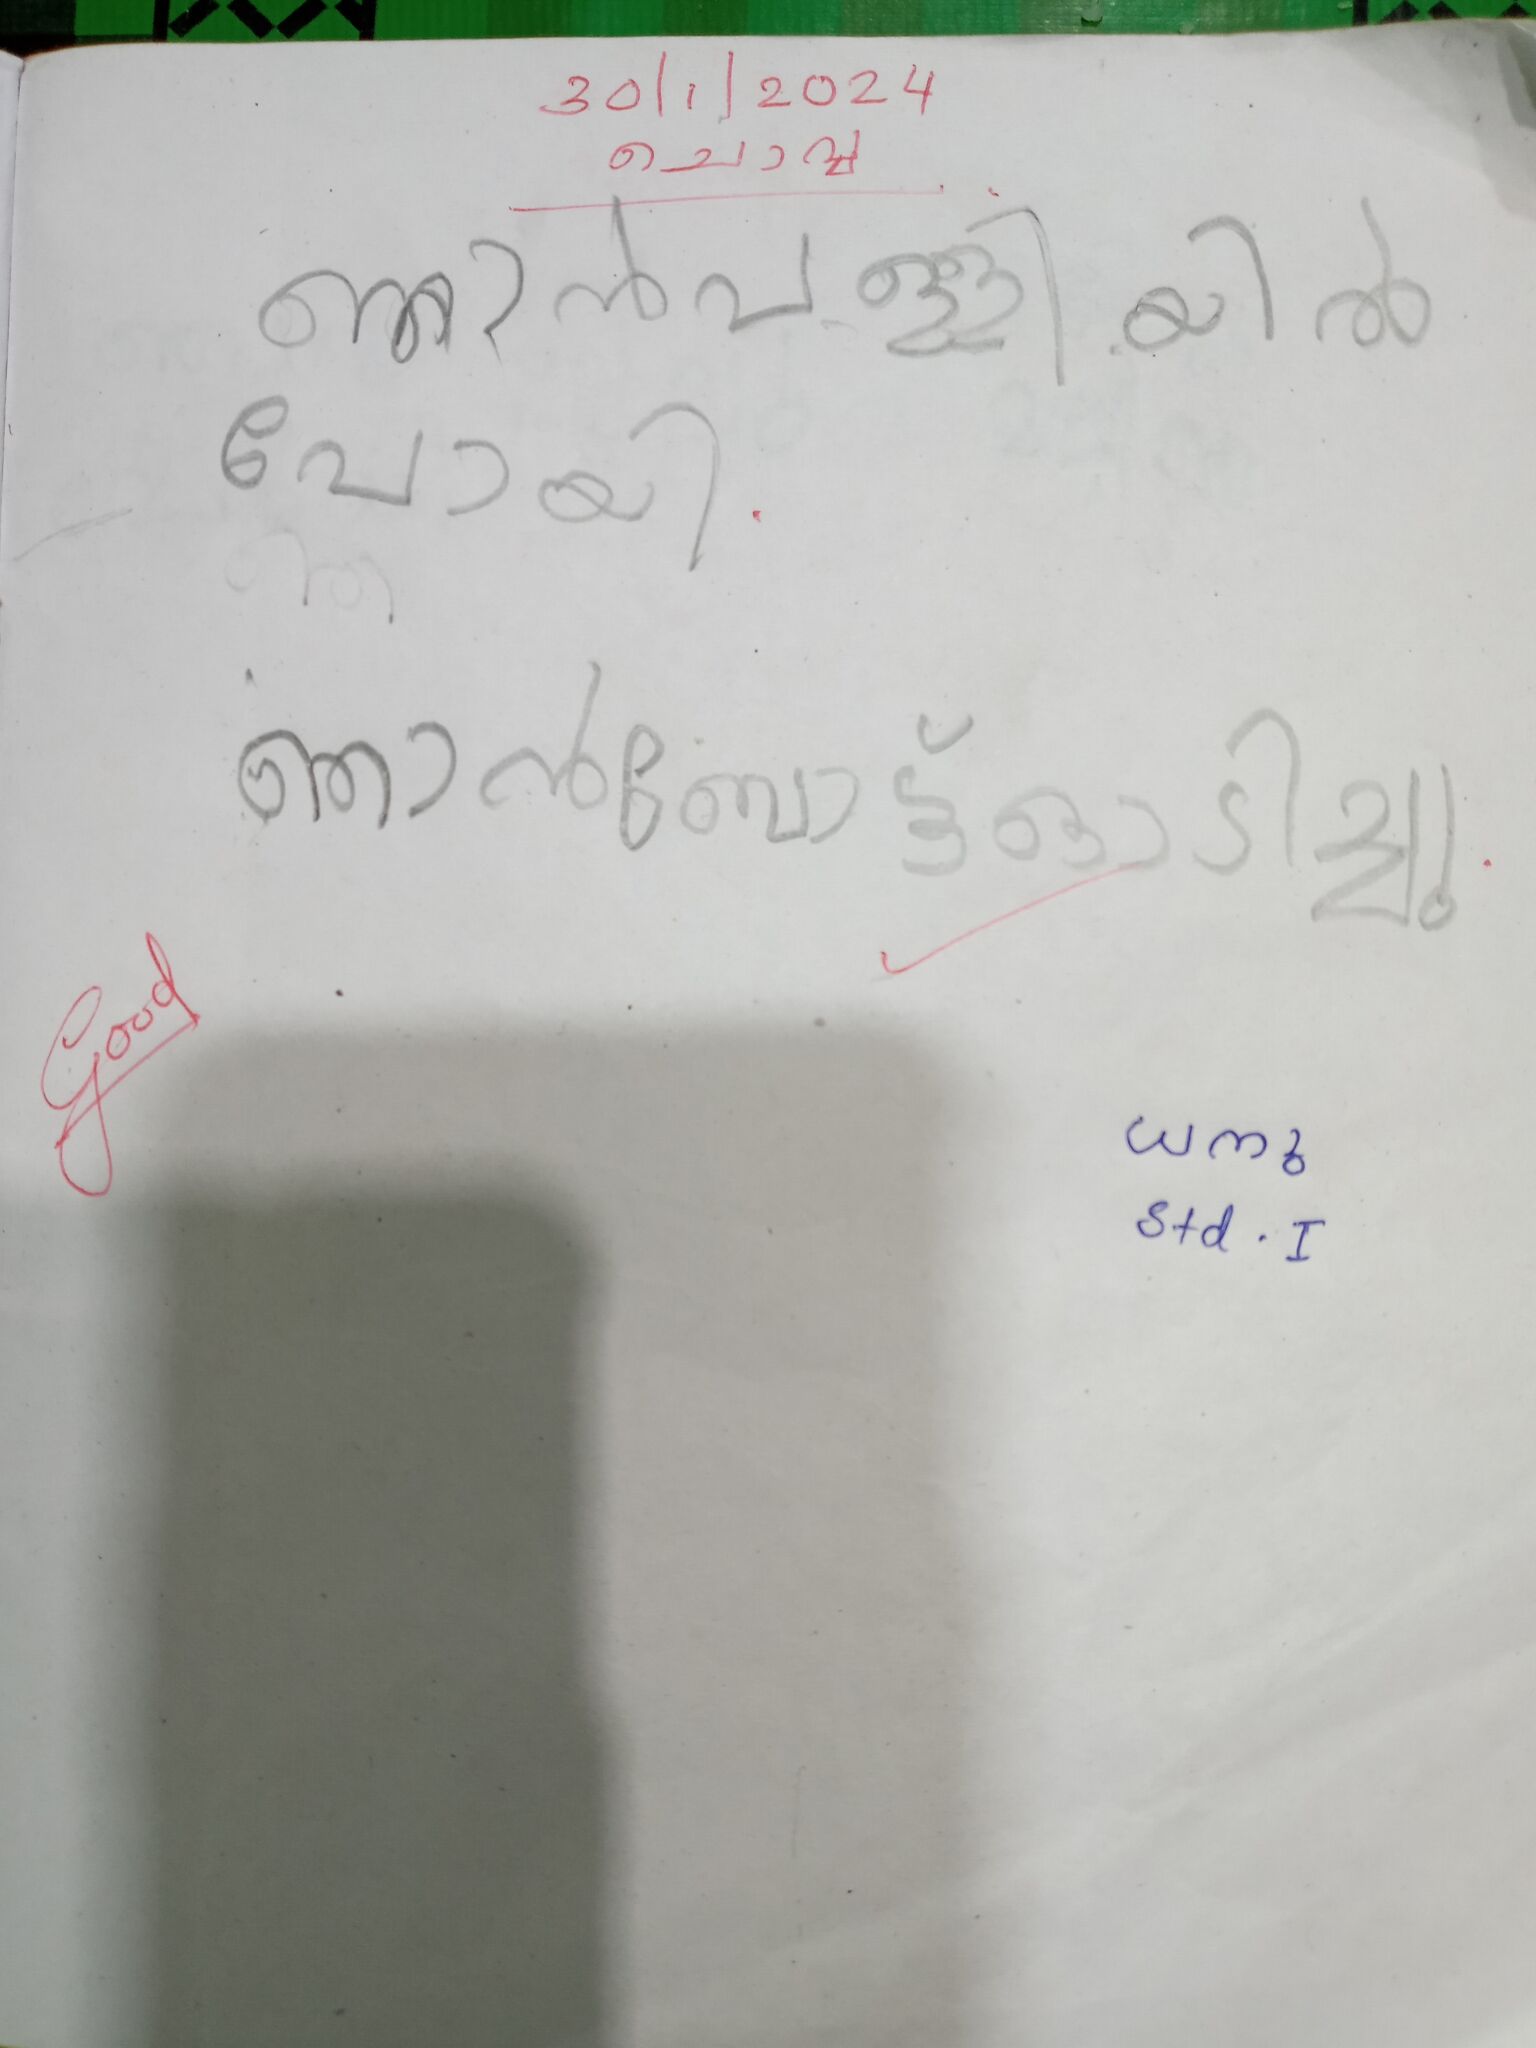 30/1/2024
ചൊവ്വ
ഞാൻ പള്ളിയിൽ
പോയി.
ഞ
ഞാൻ ബോട്ട് ഓടിച്ചു.
Good
ധനു
Std. I